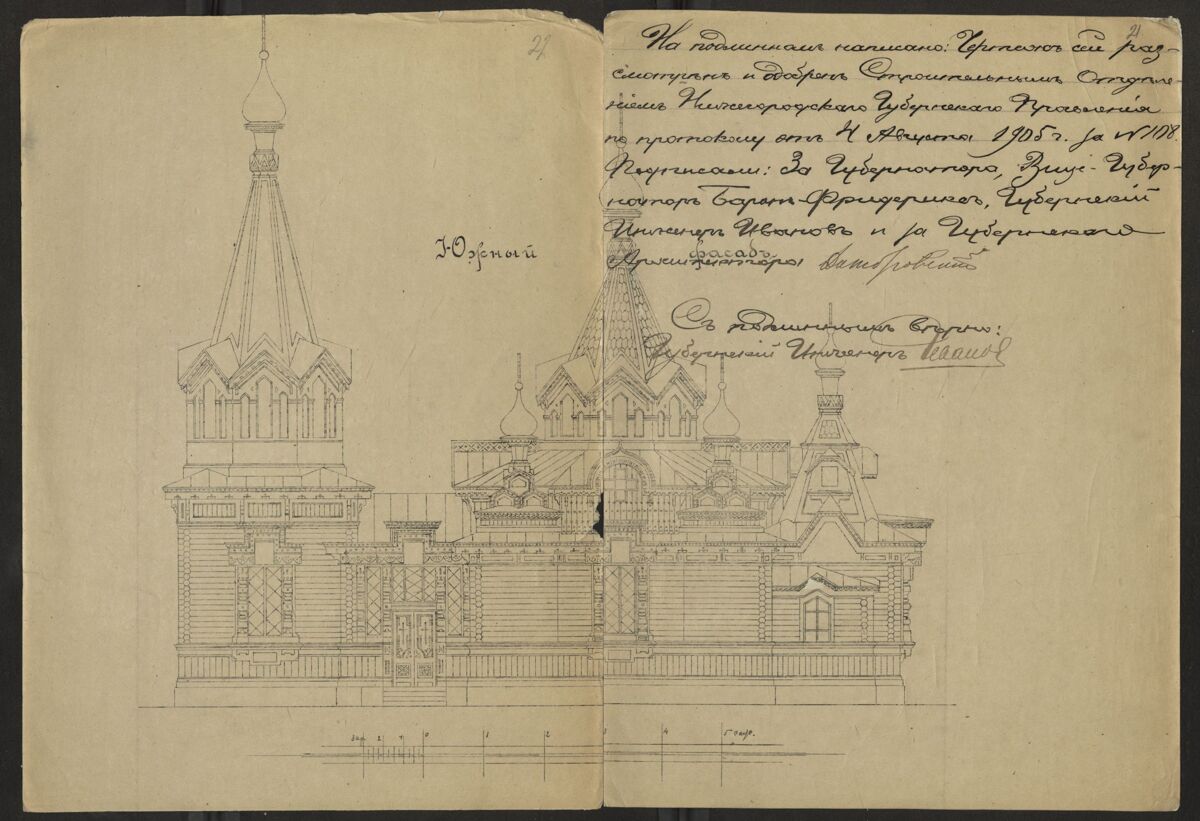 21
21
На подлинномъ написано: Чертежъ сей раз-
смотрѣнъ и одобренъ Строительнымъ Отдѣле-
ніемъ Нижегородскаго Губернскаго Правленія
по протоколу отъ 4 Августа 1905 г. за №108.
Подписали: За Губернатора, Вице-Губер-
наторъ Баронъ Фридериксъ, Губернскій
Инженеръ Ивановъ и за Губернскаго
Архитектора
Южный фасадъ
Съ подлиннымъ вѣрно:
Губернскій Инженеръ Ивановъ
3 2 1 0 1 2 3 4 5 саж.